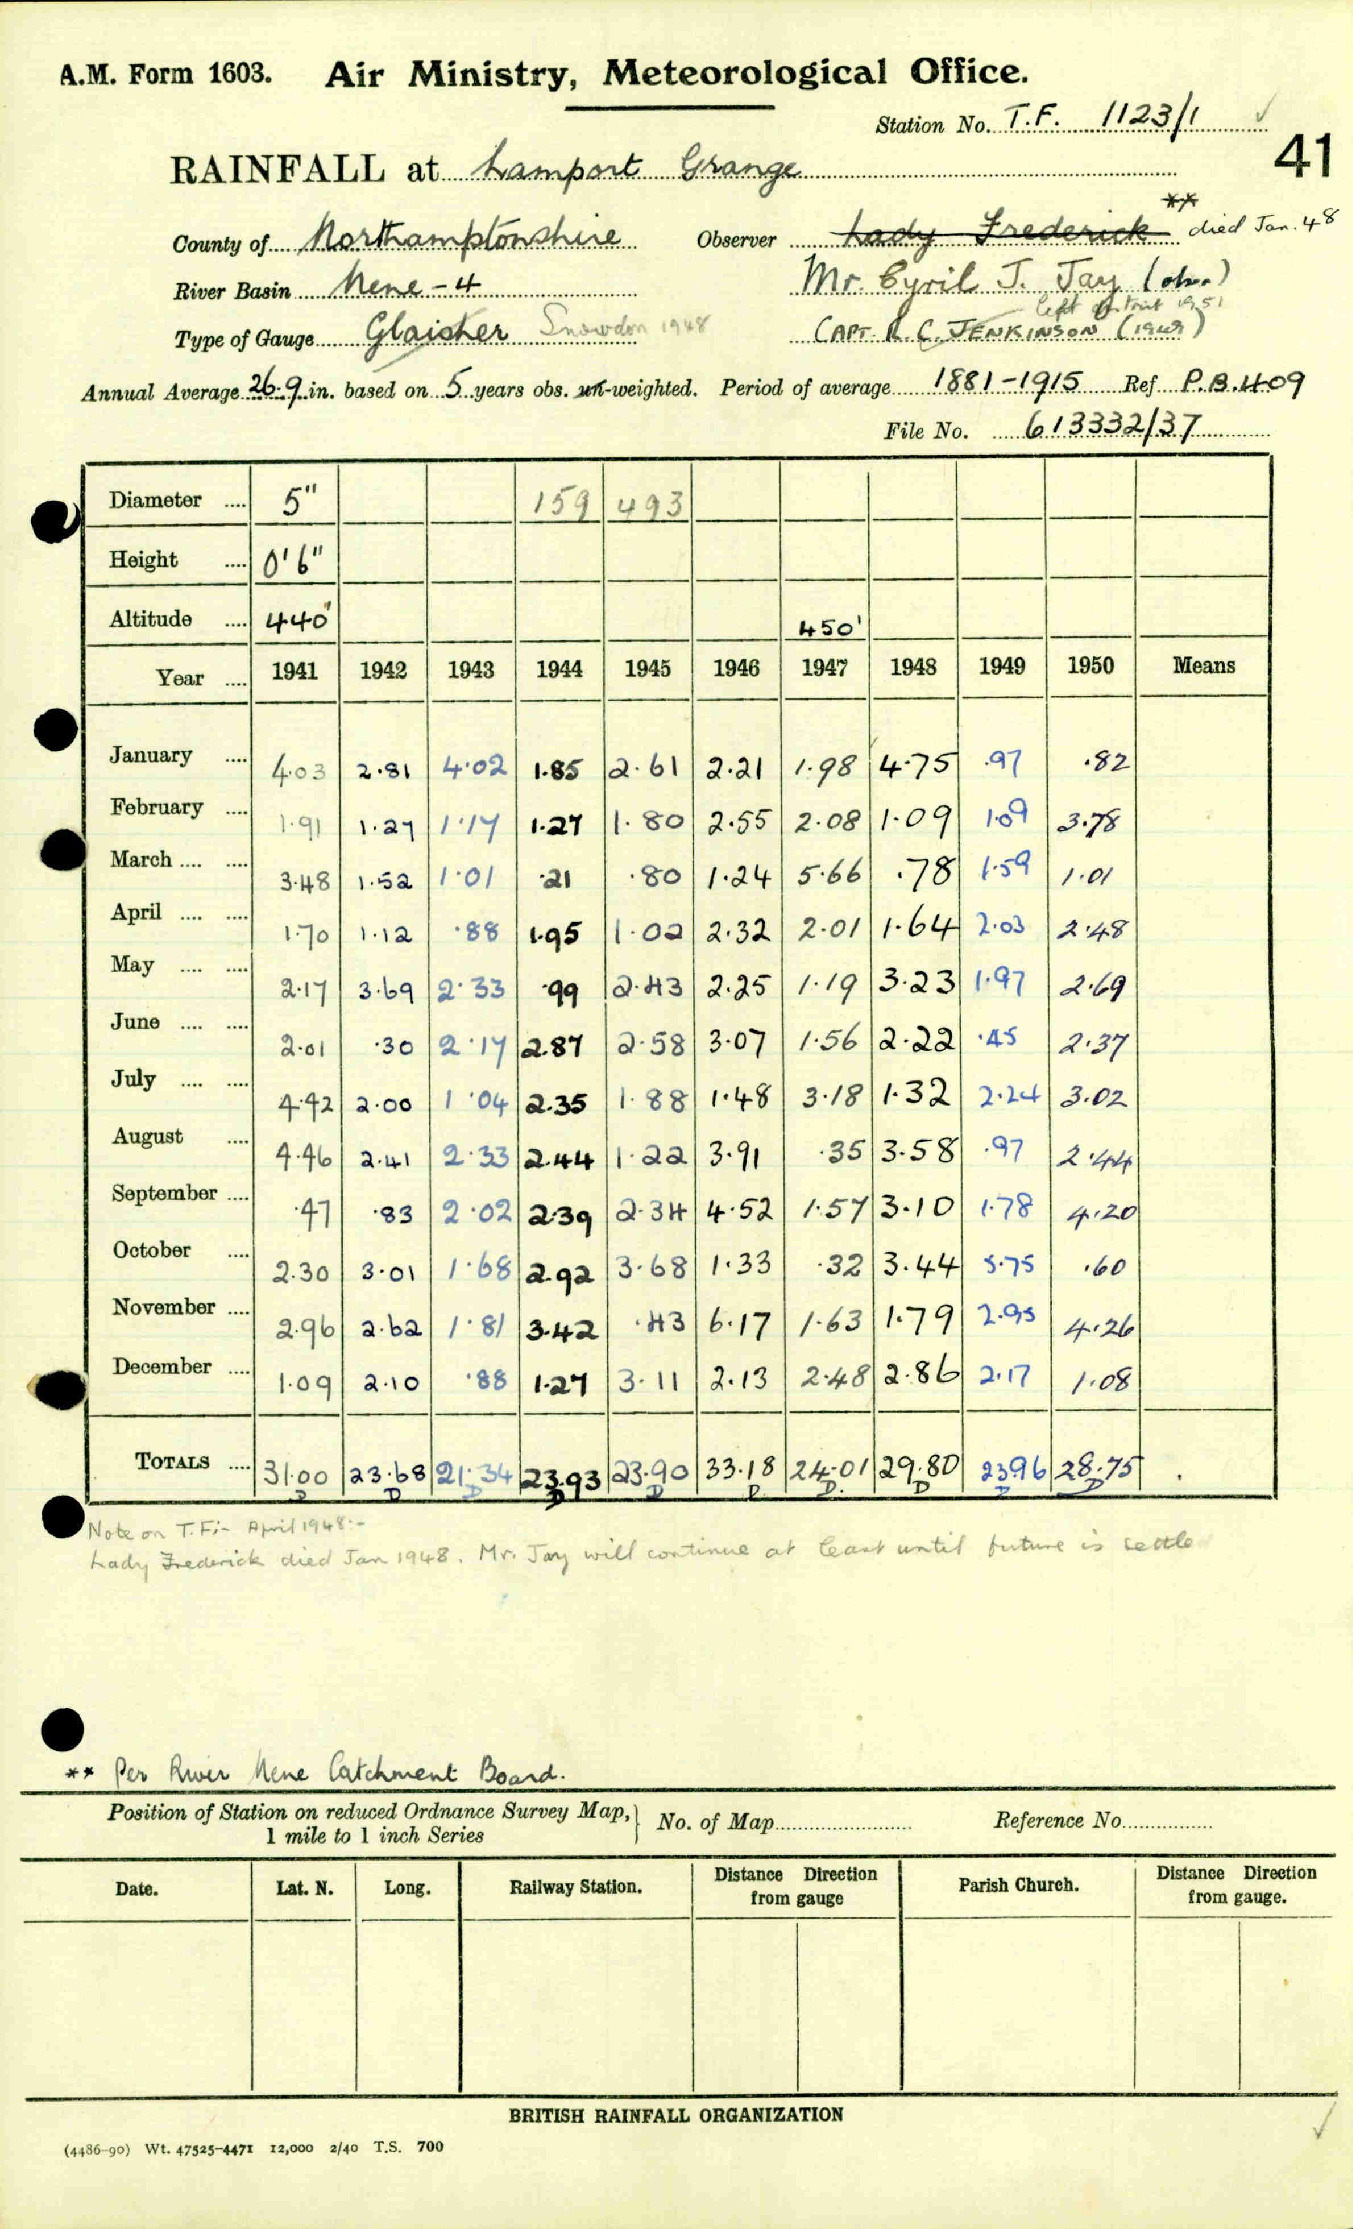 A.M. Form 1603. Air Ministry, Meteorological Office.
Station No. T.F. 1123/1 ✓
41
RAINFALL at Lamport Grange
County of Northamptonshire Observer Lady Frederick ** died Jan. 48
River Basin Nene - 4 Mr. Cyril J. Jay (obsr)
left district 1951
Type of Gauge Glaisher Snowdon 1948 CAPT. R. C. JENKINSON (1949)
Annual Average 26.9 in. based on 5 years obs. un-weighted. Period of average 1881-1915 Ref P.B.409
File No. 613332/37
Diameter .... 5" 159 493
Height .... 0'6"
Altitude .... 440' 450'
Year .... 1941 1942 1943 1944 1945 1946 1947 1948 1949 1950 Means
January .... 4.03 2.81 4.02 1.85 2.61 2.21 1.98 4.75 .97 .82
February .... 1.91 1.27 1.17 1.27 1.80 2.55 2.08 1.09 1.09 3.78
March .... .... 3.48 1.52 1.01 .21 .80 1.24 5.66 .78 1.59 1.01
April .... .... 1.70 1.12 .88 1.95 1.02 2.32 2.01 1.64 2.03 2.48
May .... .... 2.17 3.69 2.33 .99 2.43 2.25 1.19 3.23 1.97 2.69
June .... .... 2.01 .30 2.17 2.87 2.58 3.07 1.56 2.22 .45 2.37
July .... .... 4.42 2.00 1.04 2.35 1.88 1.48 3.18 1.32 2.24 3.02
August .... 4.46 2.41 2.33 2.44 1.22 3.91 .35 3.58 .97 2.44
September .... .47 .83 2.02 2.39 2.34 4.52 1.57 3.10 1.78 4.20
October .... 2.30 3.01 1.68 2.92 3.68 1.33 .32 3.44 5.75 .60
November .... 2.96 2.62 1.81 3.42 .43 6.17 1.63 1.79 2.95 4.26
December .... 1.09 2.10 .88 1.27 3.11 2.13 2.48 2.86 2.17 1.08
TOTALS .... 31.00 23.68 21.34 23.93 23.90 33.18 24.01 29.80 23.96 28.75 .
D D D D D D D. D D D
Note on T.F:- April 1948:-
Lady Frederick died Jan 1948. Mr. Jay will continue at least until future is settle
** Per River Nene Catchment Board.
Position of Station on reduced Ordnance Survey Map, } No. of Map Reference No.
1 mile to 1 inch Series
Date. Lat. N. Long. Railway Station. Distance Direction from gauge Parish Church. Distance Direction from gauge.
BRITISH RAINFALL ORGANIZATION
(4486-90) Wt. 47525-4471 12,000 2/40 T.S. 700 ✓